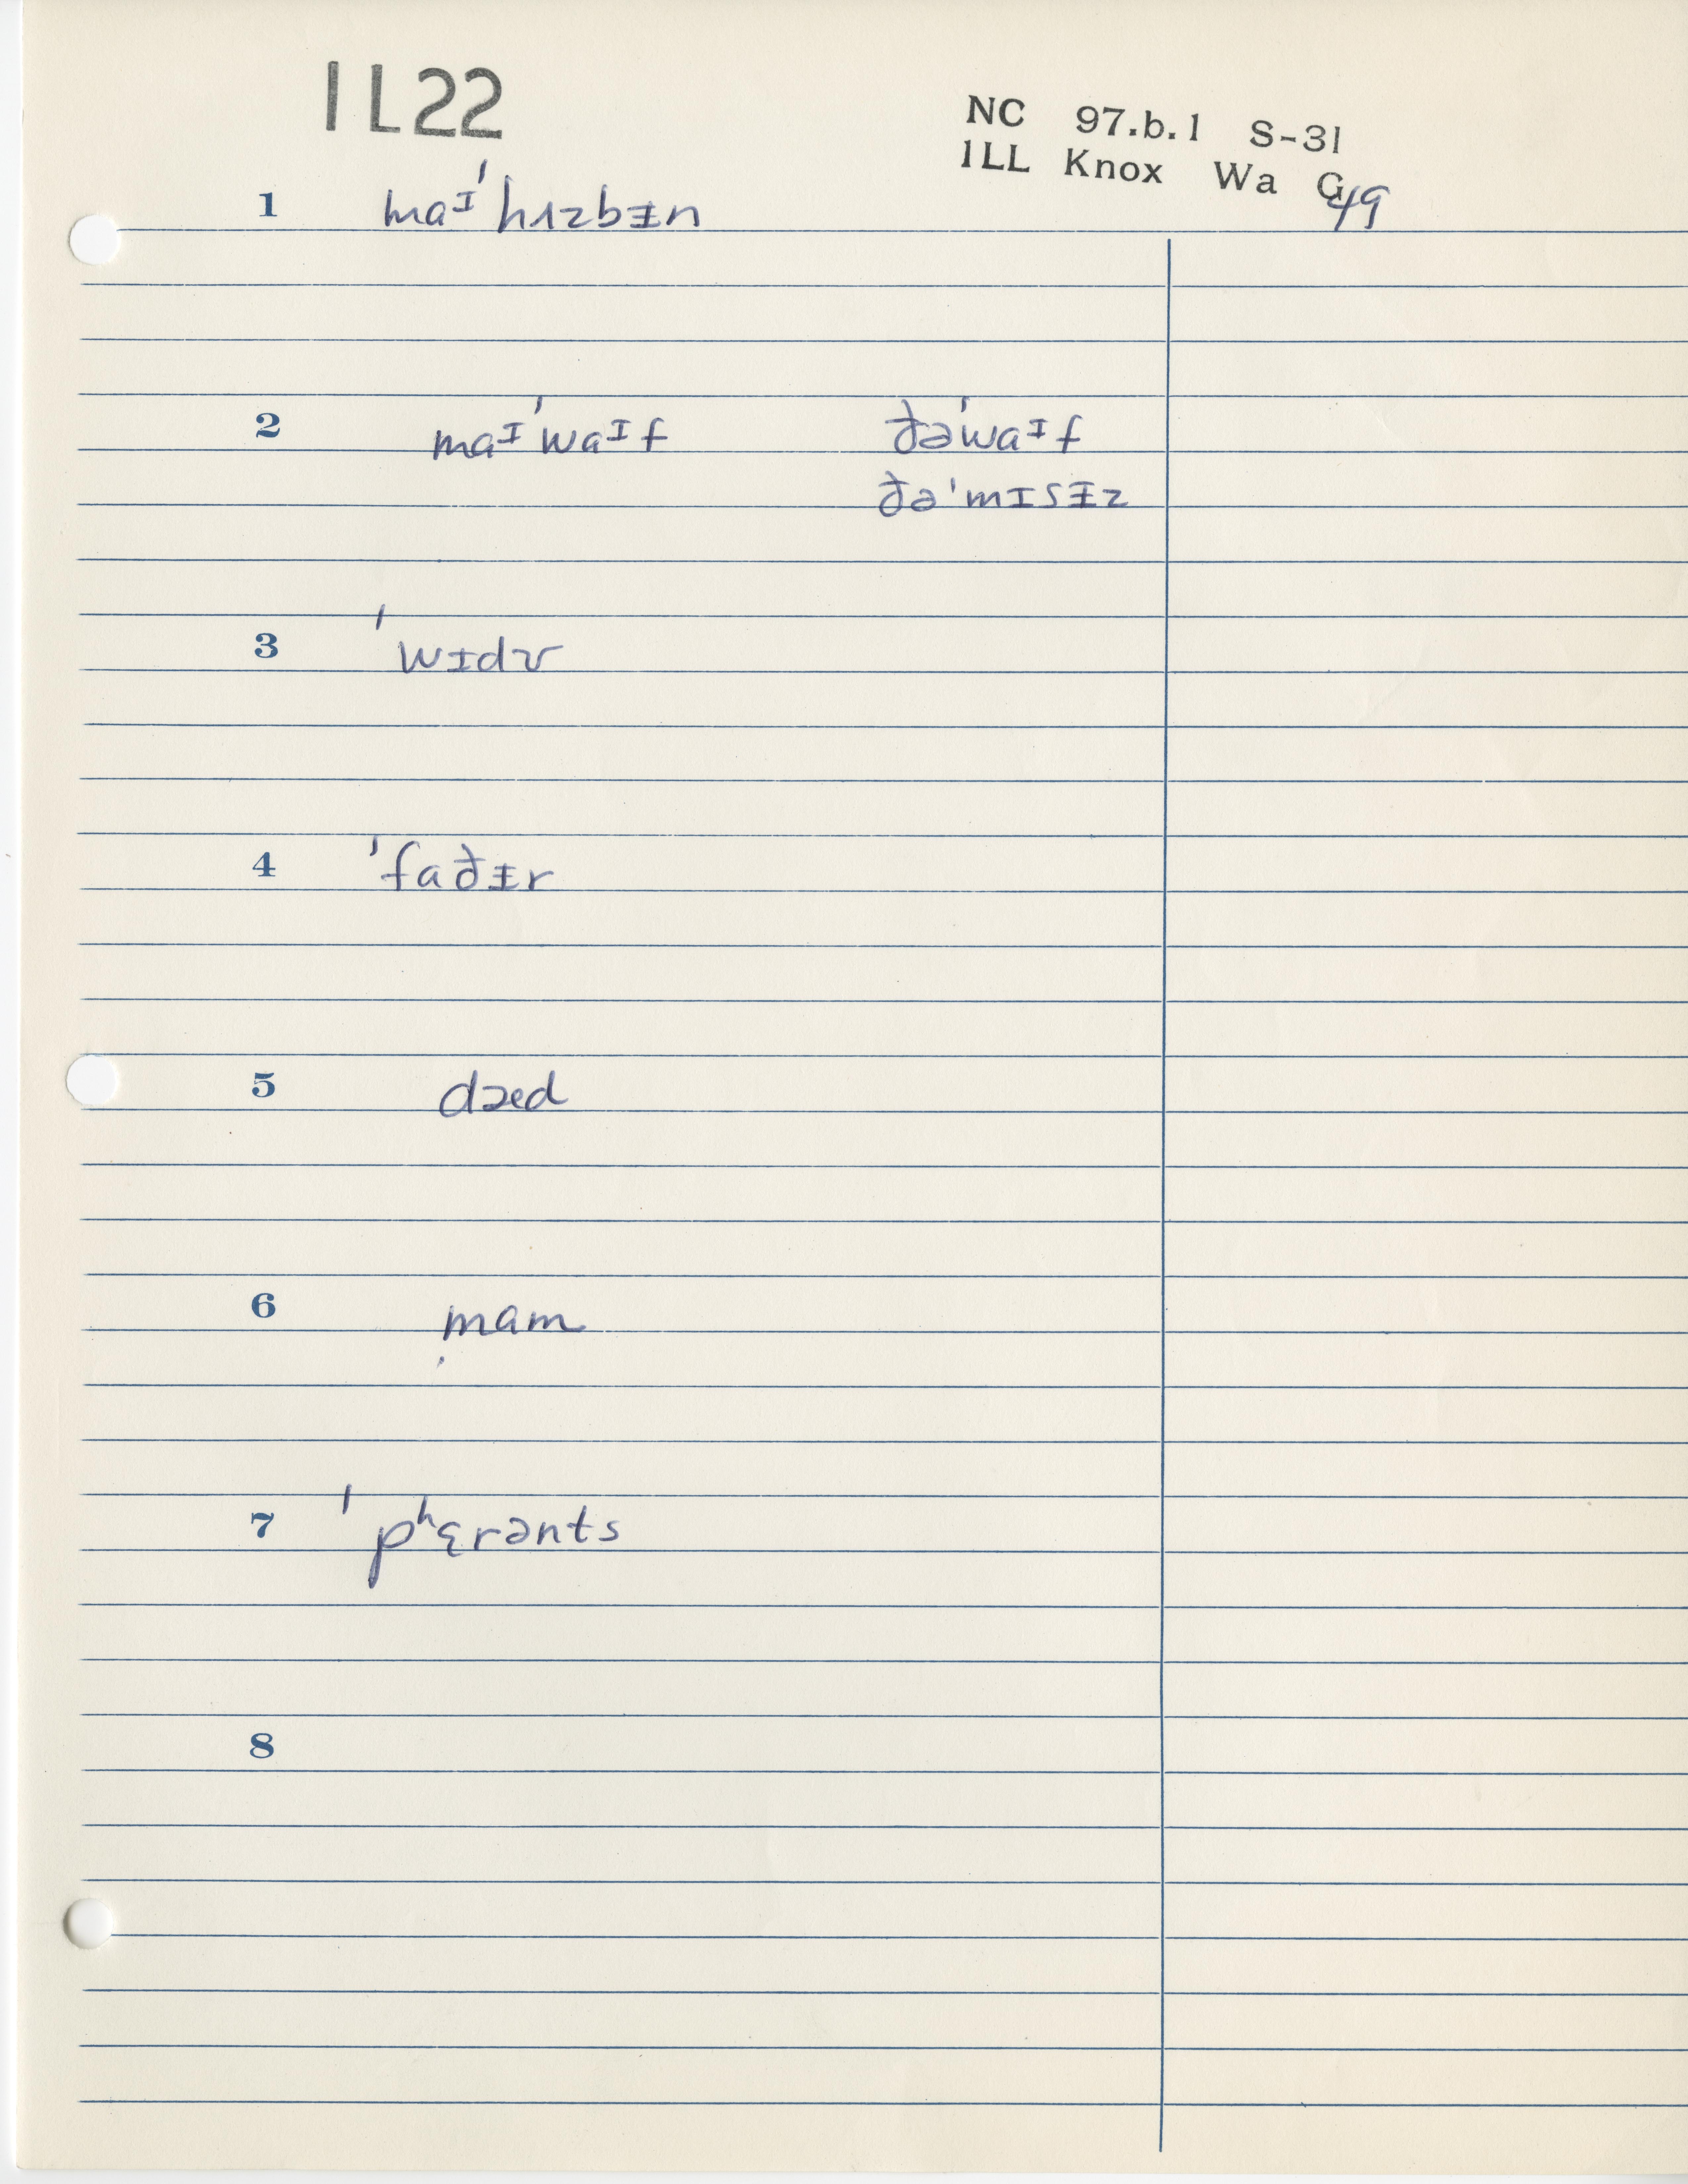 IL22
NC 97.b.1 S-31
ILL Knox Wa G
49
1 maᶦˈhʌzbɨn
2 maᶦˈwaᶦf ðəˈwaᶦf
ðəˈmɪsɨz
3 ˈwɪdɤ
4 ˈfaðɨr
5 dæd
6 mam
7 ˈpʰɛrənts
8